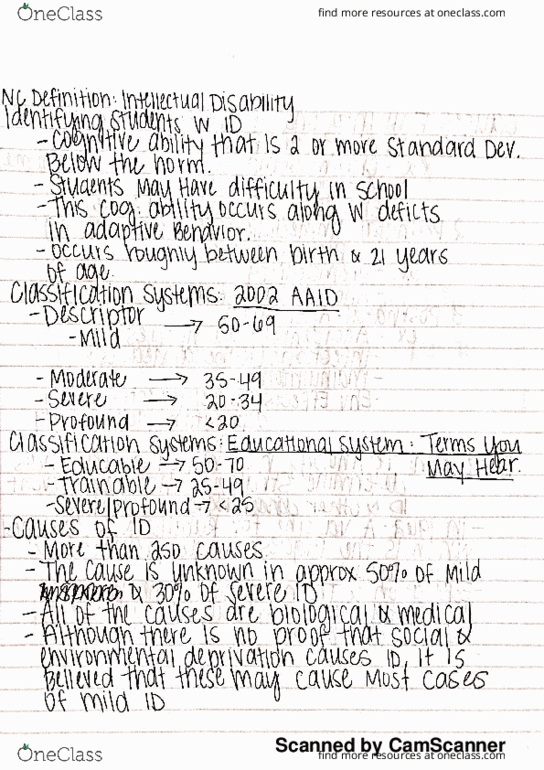 OneClass
find more resources at oneclass.com
NC Definition: Intellectual Disability
Identifying Students w ID
- Cognitive ability that is 2 or more Standard Dev.
Below the norm.
- Students May Have difficulty in school
- This cog. ability occurs along w deficts
in adaptive Behavior.
- occurs roughly between birth & 21 years
of age.
Classification Systems: 2002 AAID
- Descriptor → 50-69
- Mild
- Moderate → 35-49
- Severe → 20-34
- Profound → <20
Classification Systems: Educational System: Terms You
May Hear.
- Educable → 50-70
- Trainable → 25-49
- Severe/profound → <25
- Causes of ID
- More than 250 causes
- The cause is unknown in approx 50% of Mild
& 30% of severe ID
- All of the causes are biological & medical
- Although there is no proof that social &
environmental deprivation causes ID, it is
Believed that these may cause Most cases
of mild ID
Scanned by CamScanner
OneClass
find more resources at oneclass.com